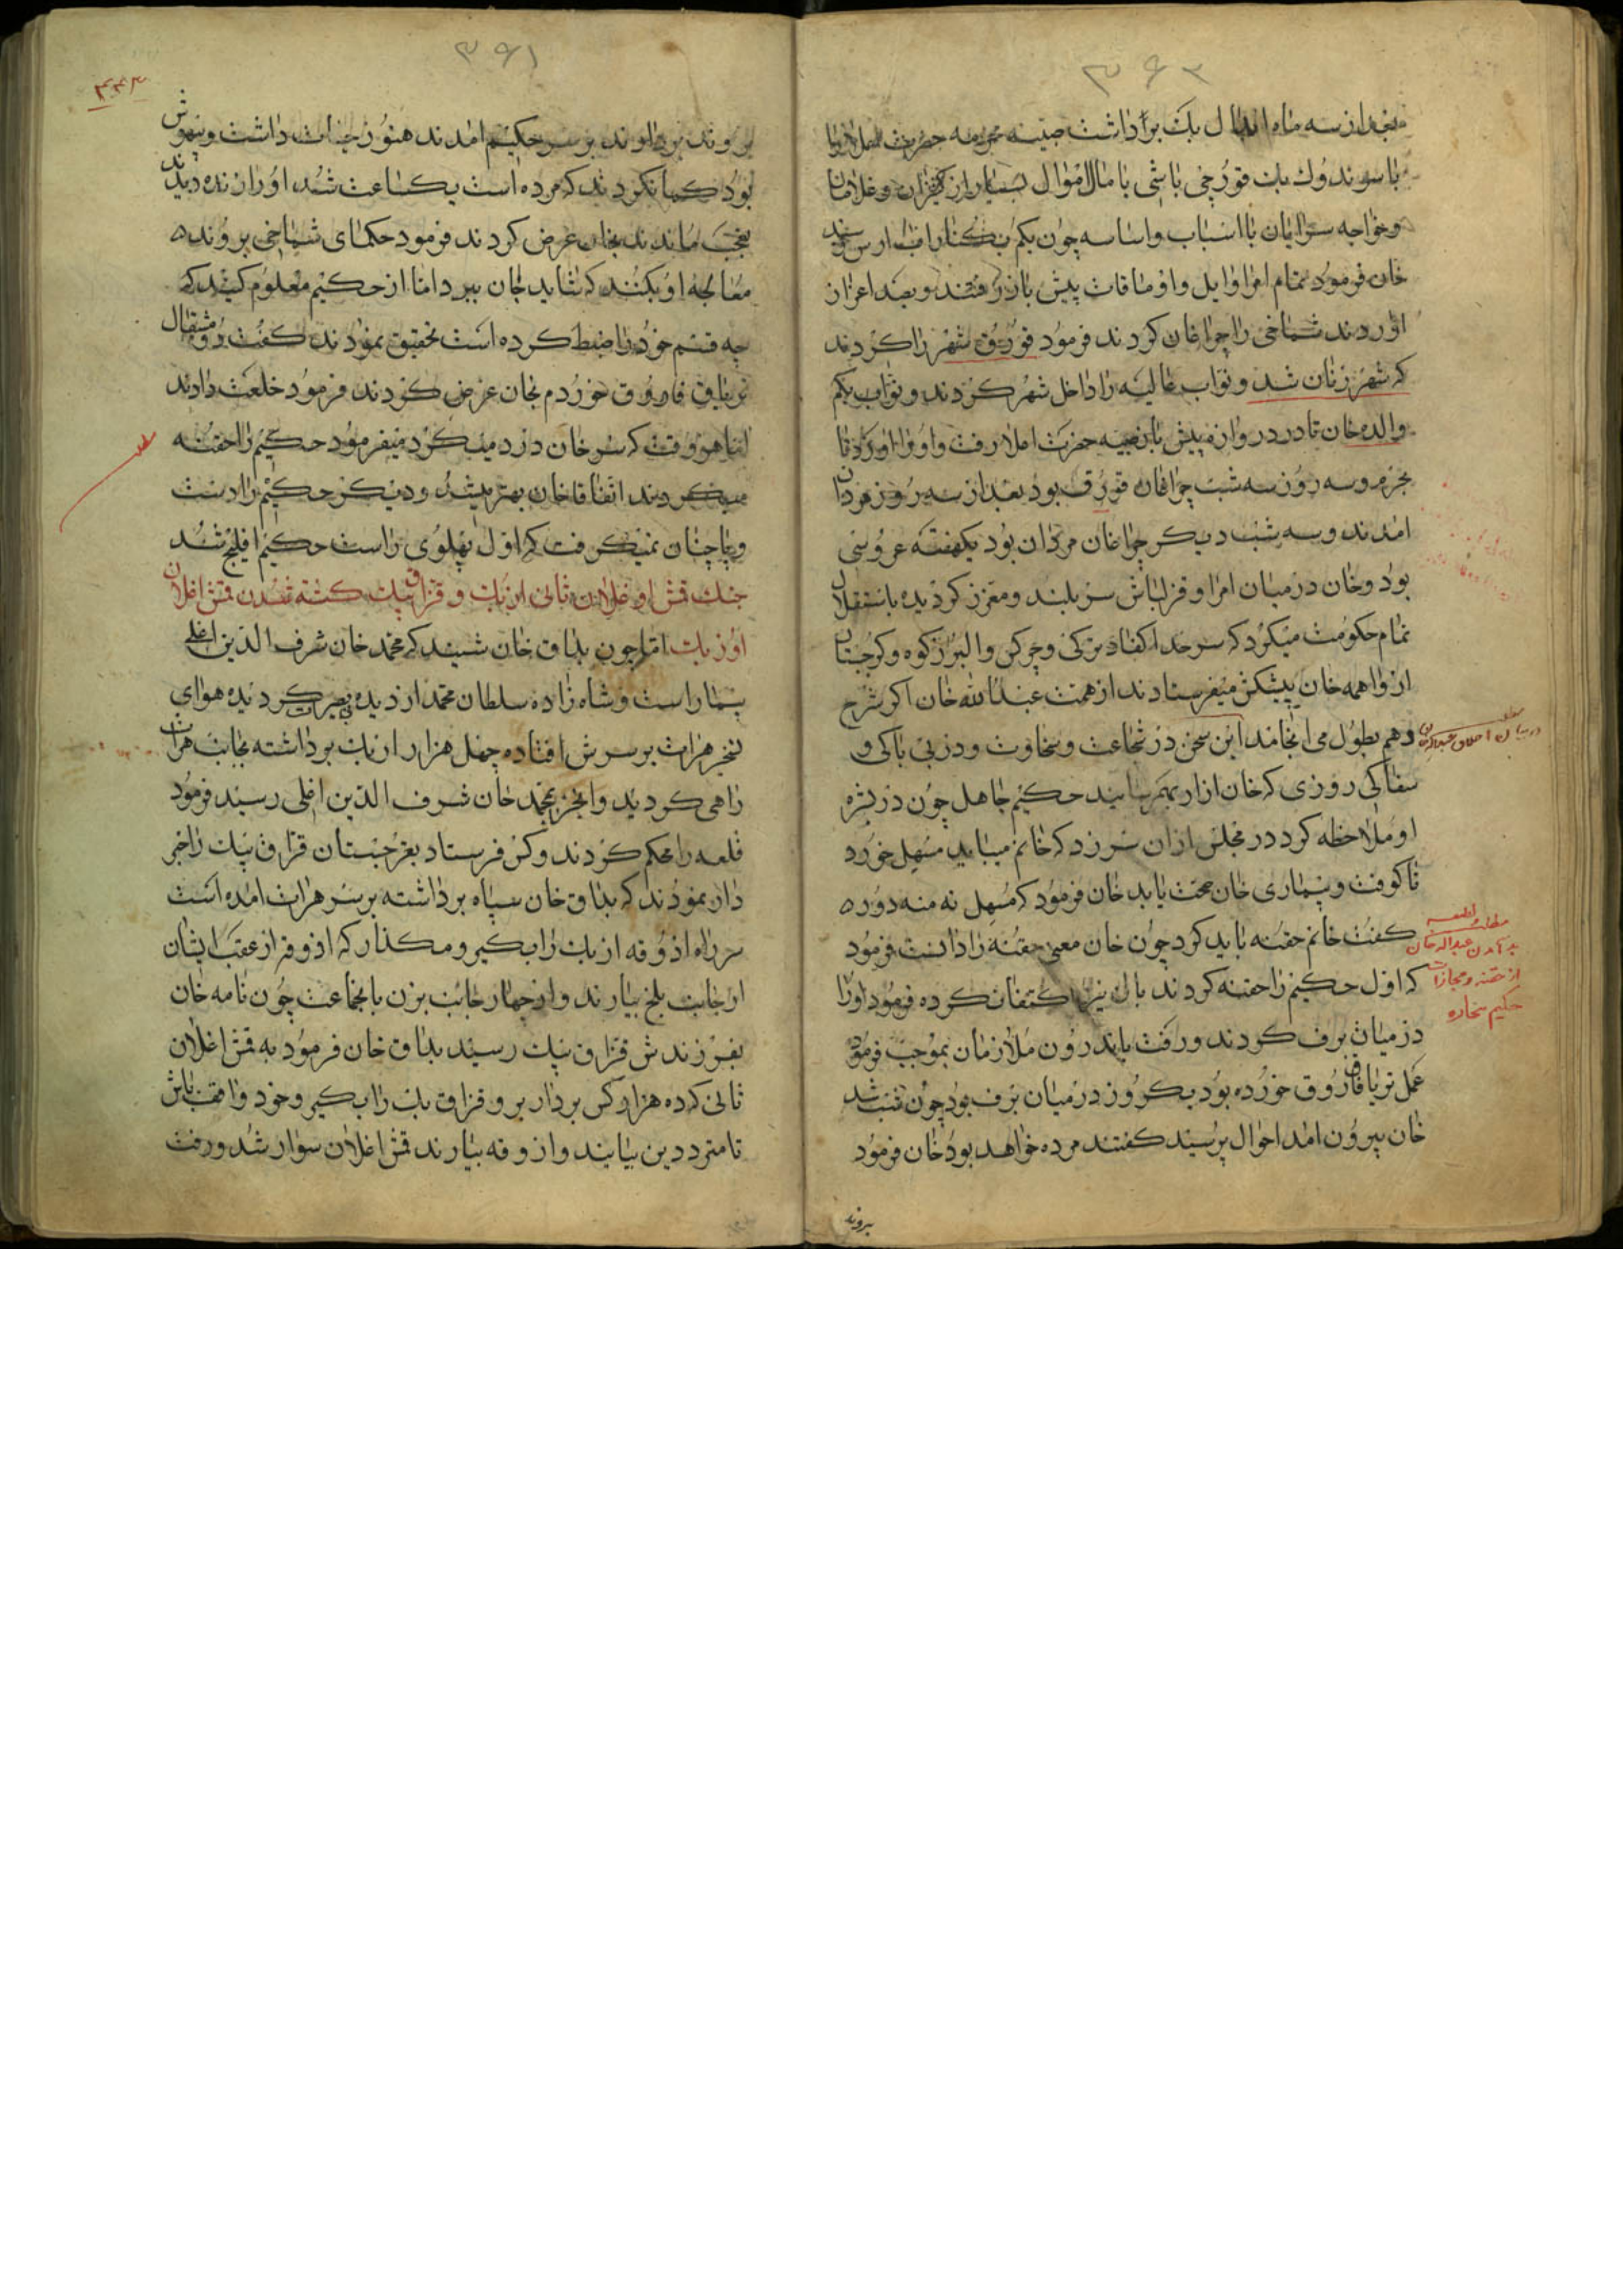 ۳۶۲
بعد از سه ماه بک برداشت صبیه محرمه حضرت
با سوندوک بک قورچی باشی با مال اموال بسیار از کنیزان و غلامان
و خواجه سرایان با اسباب و اساسه چون بکم بکنار اب ارس رسید
خان فرمود تمام امرا و ایل و اوماقات پیش باز رفتند و بصد اعزاز
اوردند شماخی را چراغان کردند فرمود قورق شهر را کردند
که شهر زنان شد و نواب عالیه را داخل شهر کردند و نواب بکم
والده خان تا در دروازه پیش باز صبیه حضرت اعلا رفت و او را اورد تا
بحرم و سه روز سه شب چراغان قورق بود بعد از سه روز مردان
امدند و سه شب دیکر چراغان مردان بود یکهفته عروسی
بود و خان در میان امرا و قزلباش سربلند و معزز کردیده باستقلال
تمام حکومت میکرد که سرحد اکفاد ترکی و چرکس و البرز کوه و کرجستان
از واهمه خان پیشکش میفرستادند از همت عبدالله خان اکر شرح
دهم بطول می انجامد این سخن در شجاعت و سخاوت و در بی باکی و
در بیان اخلاق عبدالله خان
سفاکی روزی که خان ازار بهم رسانید حکیم جاهل چون در بشره
او ملاحظه کرد در مجلس از ان سر زد که خانم میباید مسهل خورد
تا کوفت و بیماری خان صحت یابد خان فرمود که مسهل نه منه دوره
کفت خانم حقنه باید کرد چون خان معنی حقنه را دانست فرمود
که اول حکیم را حقنه کردند بالش نیز اکتفا نکرده فرمود او را
مطلب لطیفه
بد آمدن عبدالله خان
از حقنه و مجازات
حکیم بیچاره
در میان برف کردند و رفت باندرون ملازمان بموجب فرموده
عمل تریاق فاروق خورده بود یکروز در میان برف بود چون شب شد
خان بیرون امد احوال پرسید کفتند مرده خواهد بود خان فرمود
بروند
۳۶۱
۳۴۳
بروند بردارند بر سر حکیم امدند هنوز حیات داشت و بیهوش
بود کمان کردند که مرده است یکساعت شد او را زنده دیدند
بعجب ماندند بخان عرض کردند فرمود حکمای شماخی بروند
معالجه او بکنند که شاید جان ببرد اما از حکیم معلوم کنید که
چه قسم خود را ضبط کرده است تحقیق نمودند کفت دو مثقال
تریاق فاروق خوردم بخان عرض کردند فرمود خلعت دادند
اما هر وقت که سر خان درد میکرد میفرمود حکیم را حقنه
میکردند اتفاقا خان بهتر میشد و دیکر حکیم را دست
و پا چنان نمیکرفت که اول پهلوی راست حکیم افلیج شد
جنک قمش اوغلان ثانی ازبک و قزاق بیک کشته شدن قمش اغلان
اوزبک اما چون بداق خان شنید که محمد خان شرف الدین اغلی
بیمار است و شاه زاده سلطان محمد از دیده بی بصیرت کردیده هوای
تسخیر هرات بر سرش افتاده چهل هزار ازبک برداشته بجانب هرات
راهی کردید و این خبر بمحمد خان شرف الدین اغلی رسید فرمود
قلعه را محکم کردند و کس فرستاد بغرجستان قزاق بیک را خبر
دار نمودند که بداق خان سپاه برداشته بر سر هرات امده است
سر راه اذوقه ازبک را بکیر و مکذار که اذوقه از عقب ایشان
از جانب بلخ بیارند و از چهار جانب بزن با نجماعت چون نامه خان
بفرزندش قزاق بیک رسید بداق خان فرمود به قمش اغلان
ثانی که ده هزار کس بردار برو قزاق بک را بکیر و خود واقف باش
تا مترددین بیایند و ازوقه بیارند قمش اغلان سوار شد و رفت